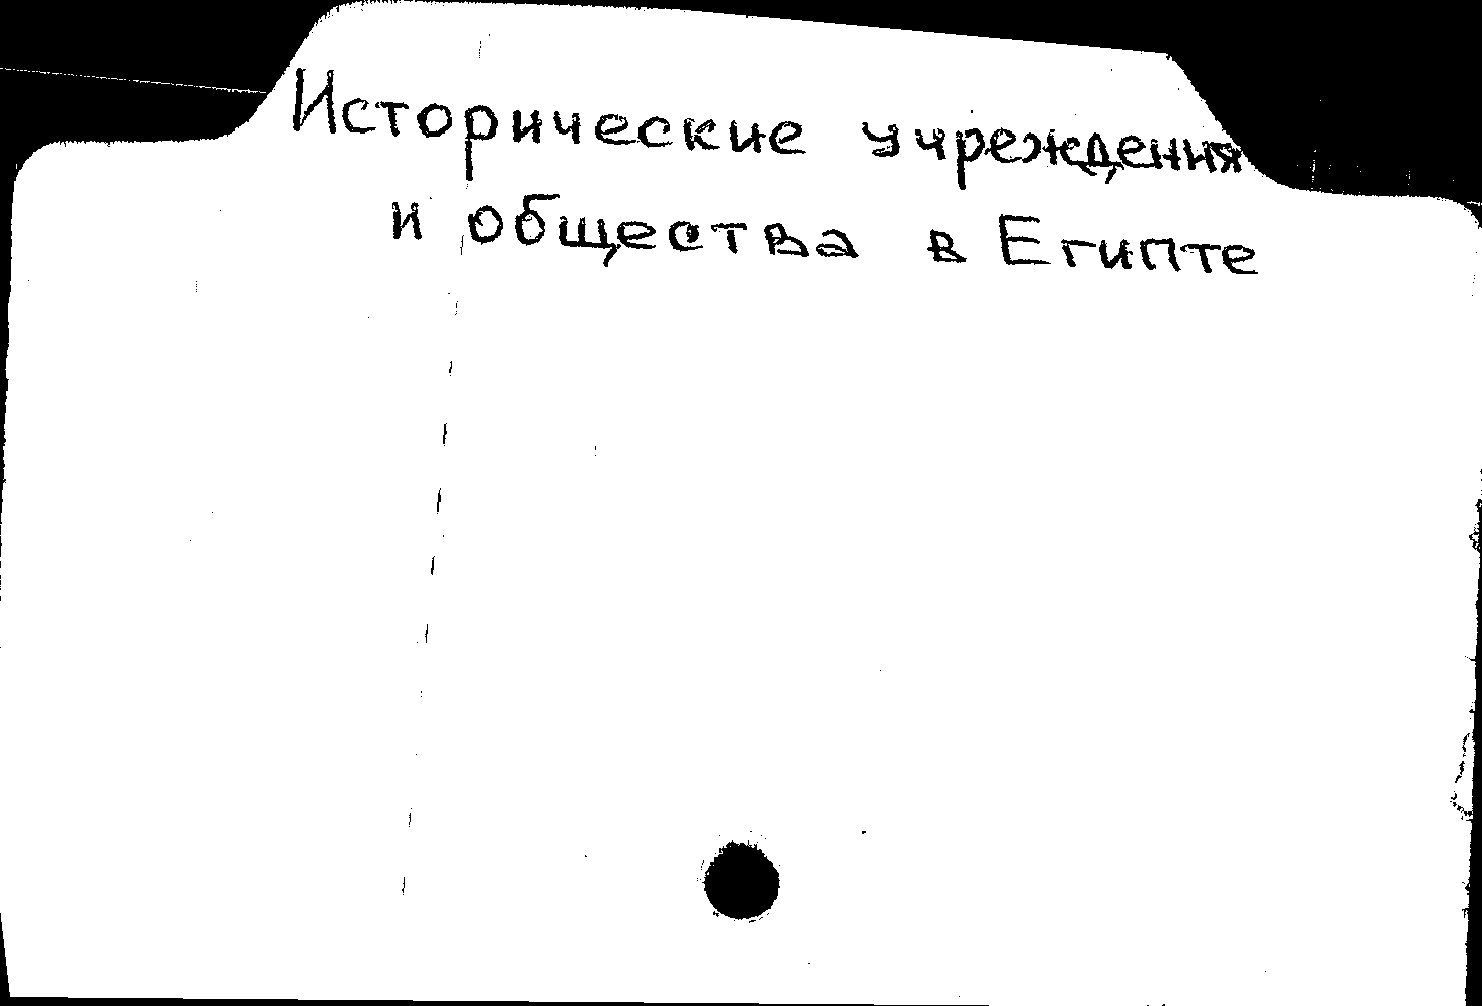 Исторические учреждения
и общества в Египте